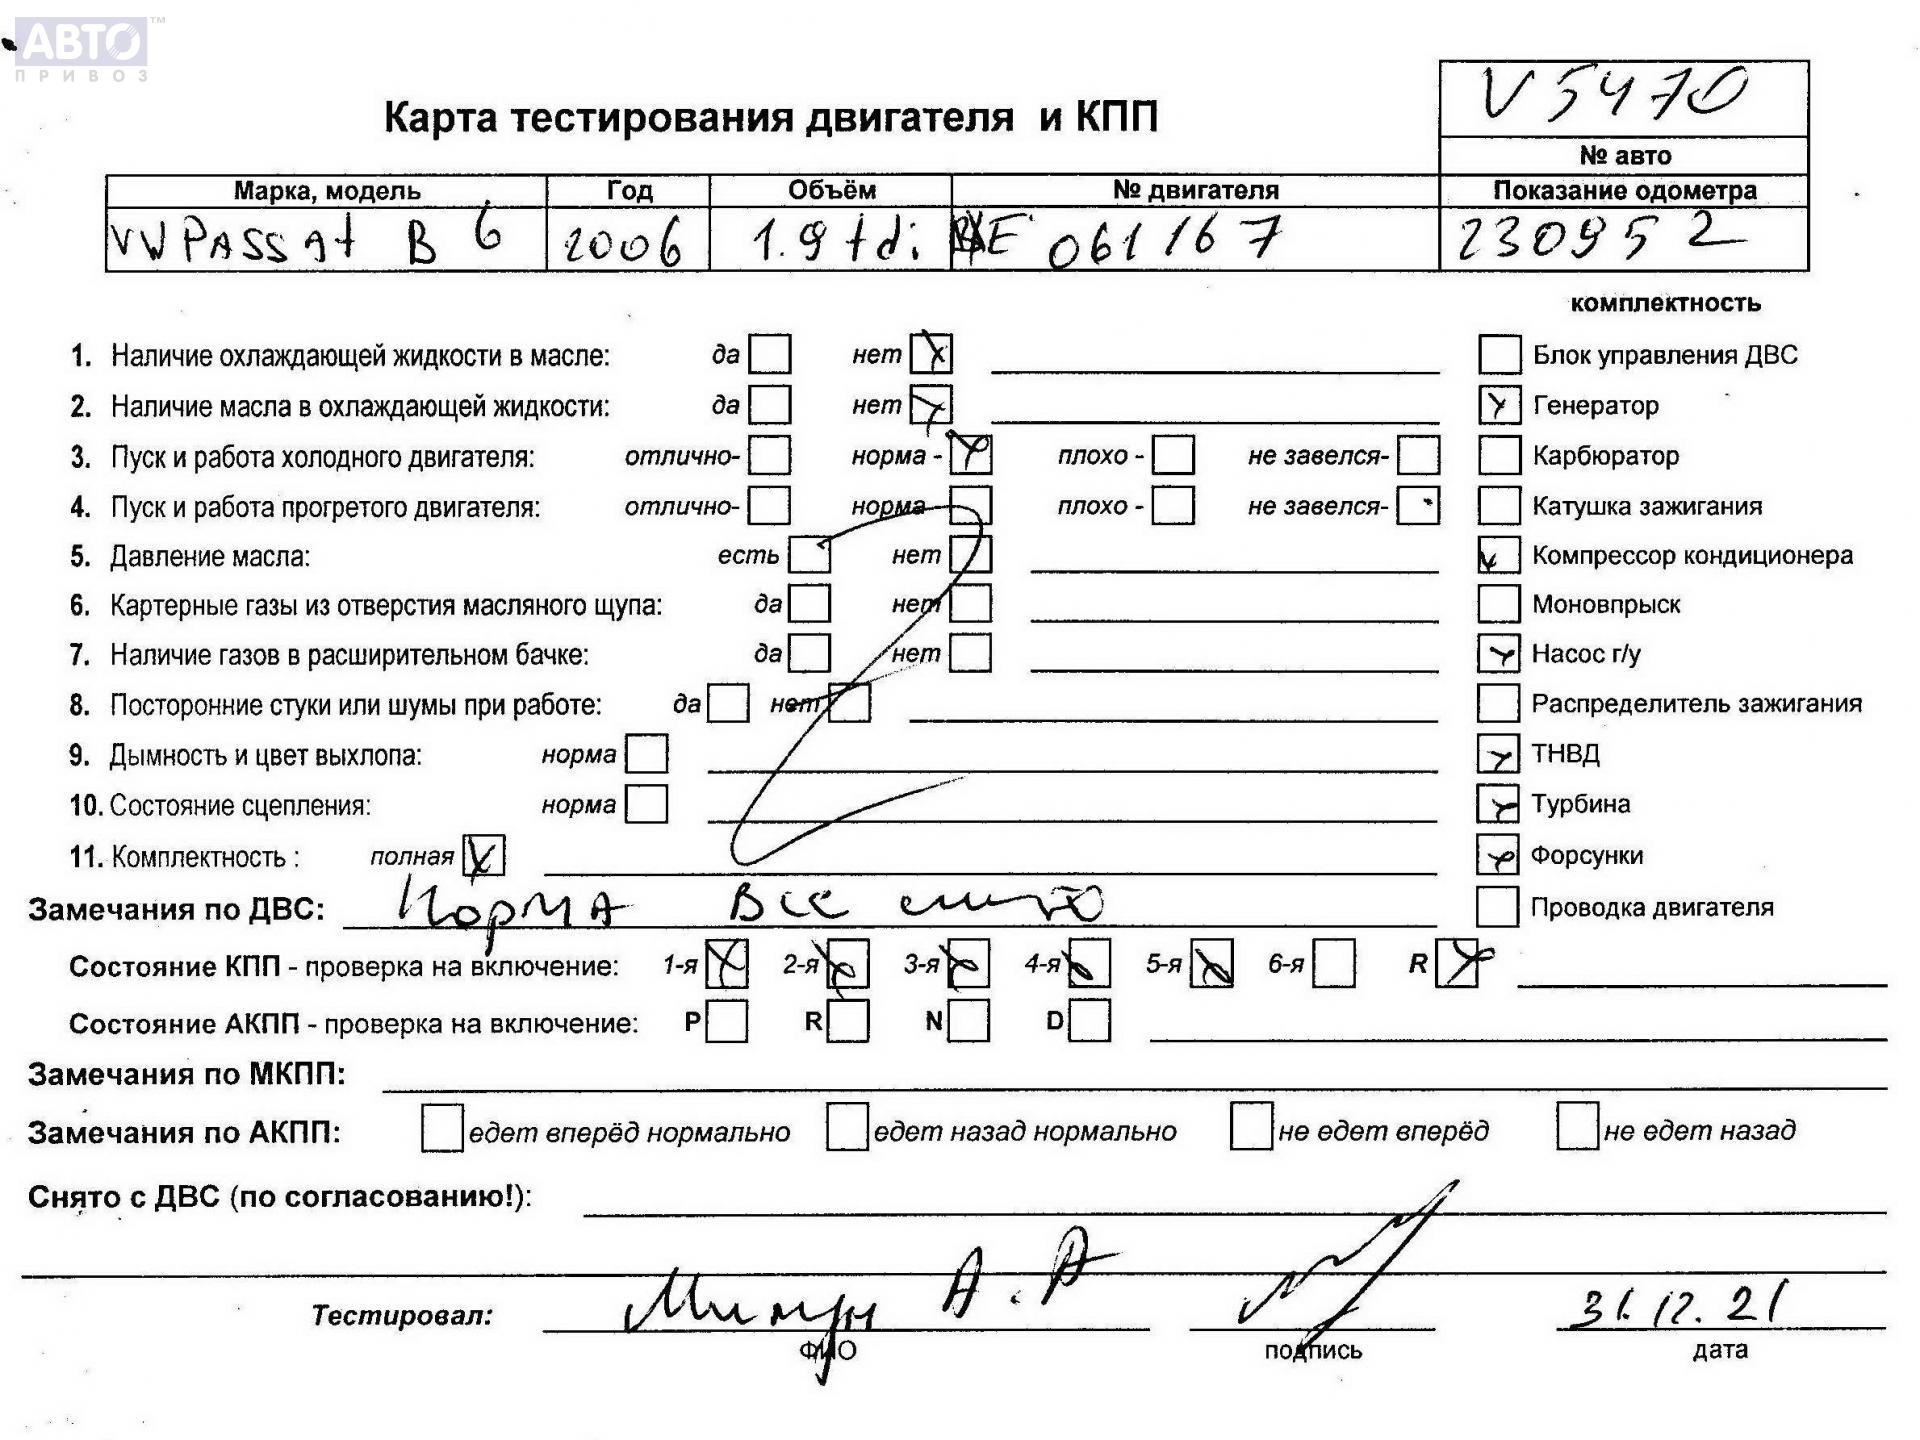 АВТО™
ПРИВОЗ
V5470
Карта тестирования двигателя и КПП
№ авто
Марка, модель Год Объём № двигателя Показание одометра
VW PASSAt B 6 2006 1.9 tdi 061167 230952
комплектность
1. Наличие охлаждающей жидкости в масле: да нет Блок управления ДВС
2. Наличие масла в охлаждающей жидкости: да нет Генератор
3. Пуск и работа холодного двигателя: отлично- норма - плохо - не завелся- Карбюратор
4. Пуск и работа прогретого двигателя: отлично- норма плохо - не завелся- Катушка зажигания
5. Давление масла: есть нет Компрессор кондиционера
6. Картерные газы из отверстия масляного щупа: да нет Моновпрыск
7. Наличие газов в расширительном бачке: да нет Насос г/у
8. Посторонние стуки или шумы при работе: да нет Распределитель зажигания
9. Дымность и цвет выхлопа: норма ТНВД
10. Состояние сцепления: норма Турбина
11. Комплектность : полная Форсунки
Замечания по ДВС: Норма Все Проводка двигателя
Состояние КПП - проверка на включение: 1-я 2-я 3-я 4-я 5-я 6-я R
Состояние АКПП - проверка на включение: P R N D
Замечания по МКПП:
Замечания по АКПП: едет вперёд нормально едет назад нормально не едет вперёд не едет назад
Снято с ДВС (по согласованию!):
Тестировал: А.А 31.12.21
ФИО подпись дата